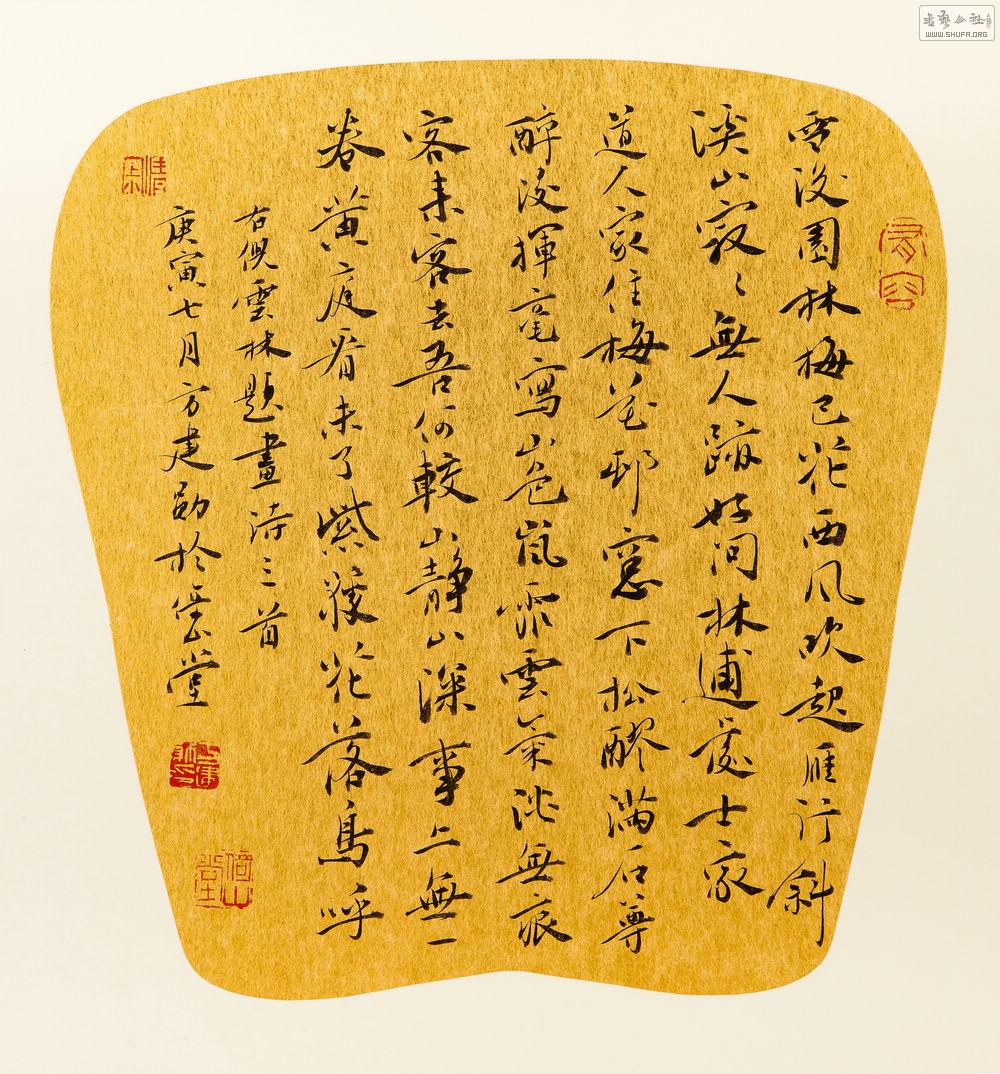 雪後園林梅已花西風吹起雁行斜
溪山寂〻無人跡好問林逋處士家
道人家住梅花邨窓下松醪滿石尊
醉後揮毫寫山色嵐霏雲氣淡無痕
客來客去吾何較山靜山深事亦無一
卷黃庭看未了紫藤花落鳥呼
右倪雲林題畫詩三首
庚寅七月方建勛於堂
有容
书艺公社
WWW.SHUFA.ORG